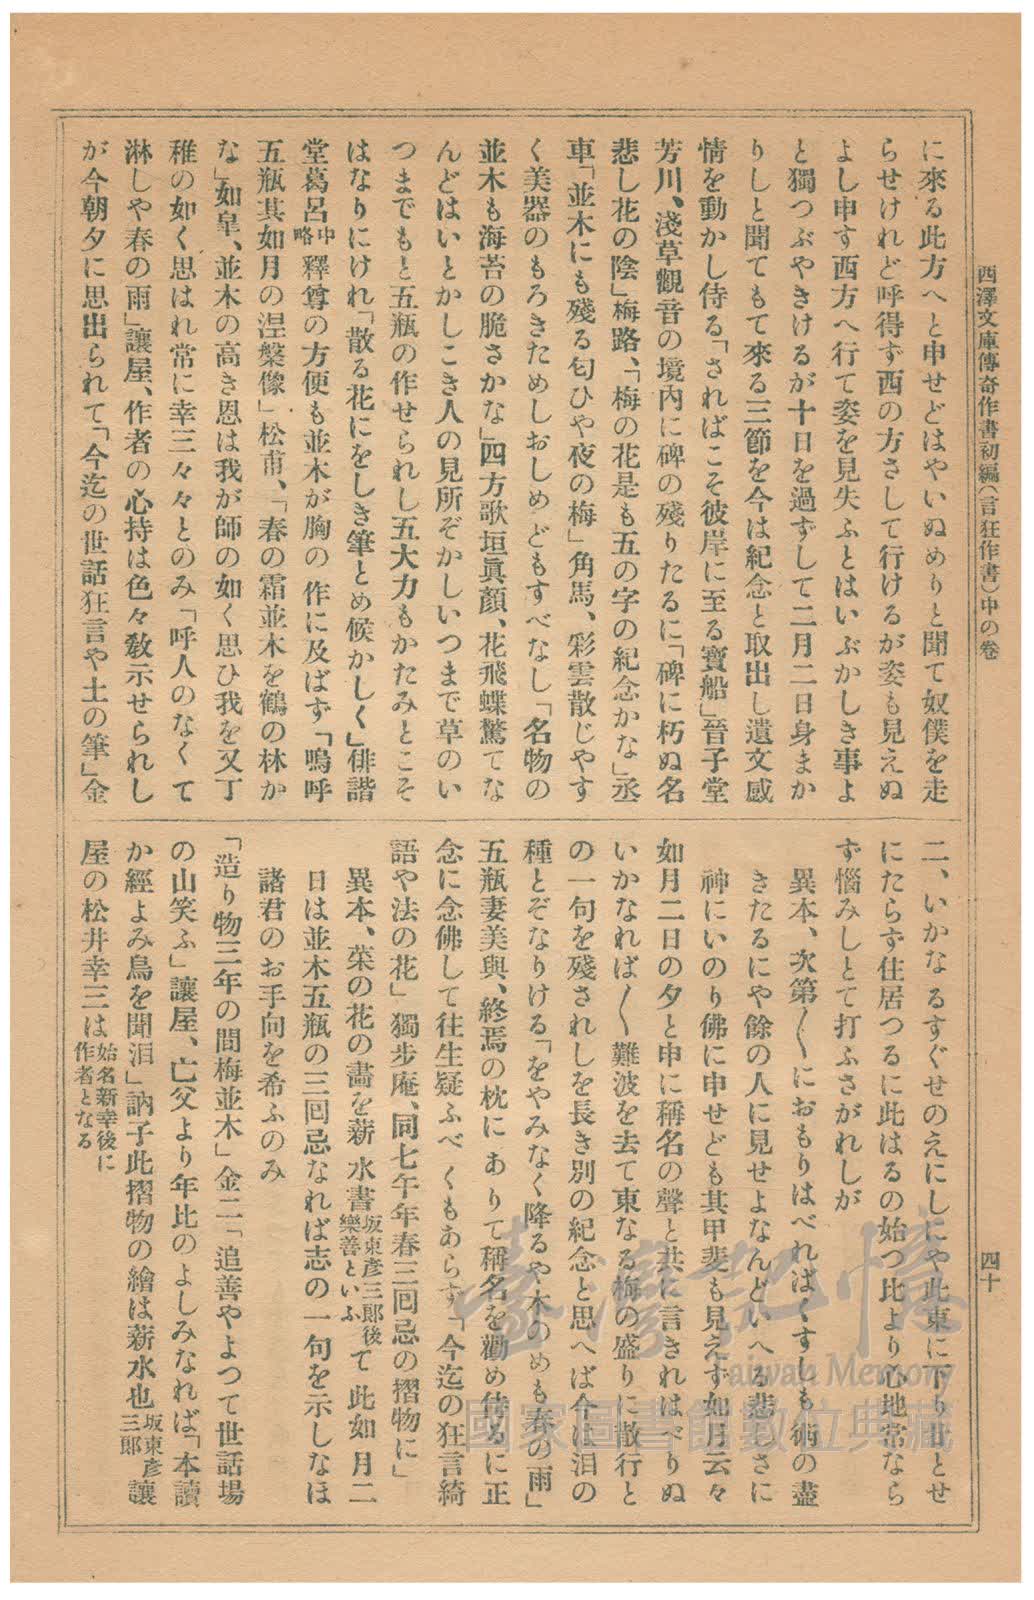 西澤文庫傳奇作書初編(言狂作書)中の卷
四十
に來る此方へと申せどはやいぬめりと聞て奴僕を走
らせけれど呼得ず西の方さして行けるが姿も見えぬ
よし申す西方へ行て姿を見失ふとはいぶかしき事よ
と獨つぶやきけるが十日を過ずして二月二日身まか
りしと聞てもて來る三節を今は紀念と取出し遺文感
情を動かし侍る「さればこそ彼岸に至る寶船」晉子堂
芳川、淺草觀音の境内に碑の殘りたるに「碑に朽ぬ名
悲し花の陰」梅路、「梅の花是も五の字の紀念かな」丞
車「並木にも殘る匂ひや夜の梅」角馬、彩雲散じやす
く美器のもろきためしおしめどもすべなし「名物の
並木も海苔の脆さかな」四方歌垣眞顏、花飛蝶驚てな
んどはいとかしこき人の見所ぞかしいつまで草のい
つまでもと五瓶の作せられし五大力もかたみとこそ
はなりにけれ「散る花にをしき筆とめ候かしく」俳諧
堂葛呂中略釋尊の方便も並木が胸の作に及ばず「嗚呼
五瓶其如月の涅槃像」松甫、「春の霜並木を鶴の林か
な」如皐、並木の高き恩は我が師の如く思ひ我を又丁
稚の如く思はれ常に幸三々々とのみ「呼人のなくて
淋しや春の雨」讓屋、作者の心持は色々敎示せられし
が今朝夕に思出られて「今迄の世話狂言や土の筆」金
二、いかなるすぐせのえにしにや此東に下り世とせ
にたらず住居つるに此はるの始つ比より心地常なら
ず惱みしとて打ふさがれしが
異本、次第〱におもりはべればくすしも術の盡
きたるにや餘の人に見せよなんどいへる悲しさに
神にいのり佛に申せども其甲斐も見えず如月云々
如月二日の夕と申に稱名の聲と共に言きれはべりぬ
いかなれば〱難波を去て東なる梅の盛りに散行と
の一句を殘されしを長き別の紀念と思へば今は泪の
種とぞなりける「をやみなく降るや木のめも春の雨」
五瓶妻美與、終焉の枕にありて稱名を勸め侍るに正
念に念佛して往生疑ふべくもあらず「今迄の狂言綺
語や法の花」獨步庵、同七午年春三囘忌の摺物に」
異本、菜の花の畵を薪水書坂東彥三郎後樂善といふて此如月二
日は並木五瓶の三囘忌なれば志の一句を示しなほ
諸君のお手向を希ふのみ
「造り物三年の間梅並木」金二「追善やよつて世話場
の山笑ふ」讓屋、亡父より年比のよしみなれば「本讀
か經よみ鳥を聞泪」訥子此摺物の繪は薪水也坂東彥三郎讓
屋の松井幸三は始名新幸後に作者となる
臺灣記憶
Taiwan Memory
國家圖書館數位典藏